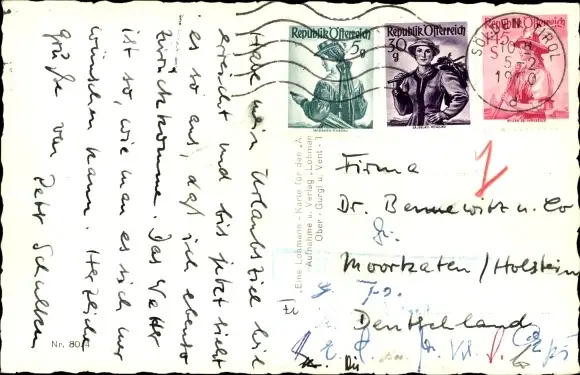 Habe mein Urlaubsziel hier
erreicht und bis jetzt sieht
es so aus, daß ich ebenso
zurückkomme. Das Wetter
ist so, wie man es sich nur
wünschen kann. Herzliche
Grüße von Peter
Nr. 8074
"Eine Lohmann-Karte für den
Aufnahme u. Verlag Lohman
Ober-Gurgl u. Vent-T
Republik Österreich
5g
Republik Österreich
30g
Republik Österreich
SÖLDEN, TIROL
1
Firma
Dr. Bennewitz u. Co
Moorkaten/Holstein
Deutschland